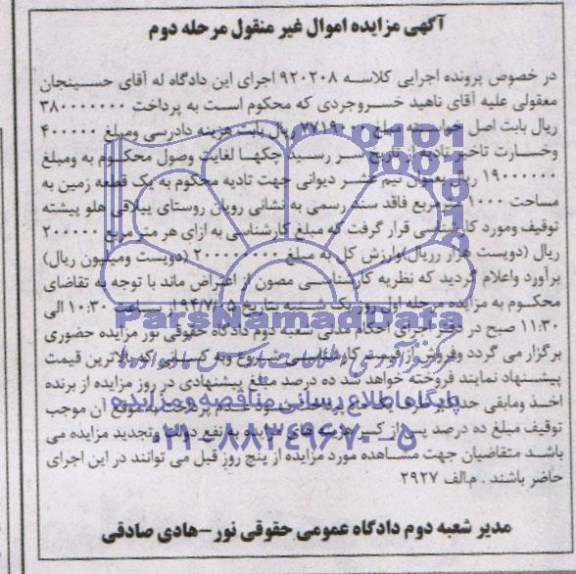 آگهی مزایده اموال غیر منقول مرحله دوم
در خصوص پرونده اجرایی کلاسه ۹۲۰۲۰۸ اجرای این دادگاه له آقای حسینجان
معقولی علیه آقای ناهید خسروجردی که محکوم است به پرداخت ۳۸۰۰۰۰۰۰۰
ریال بابت اصل خواسته مبلغ ریال بابت هزینه دادرسی ومبلغ ۴۰۰۰۰۰
وخسارت تاخیر تادیه از تاریخ سر رسید چکها لغایت وصول محکوم به ومبلغ
۱۹۰۰۰۰۰۰ ریال بعنوان نیم عشر دیوانی جهت تادیه محکوم به یک قطعه زمین به
مساحت ۱۰۰۰ متر مربع فاقد سند رسمی به نشانی رویان روستای ییلاقی هلو پیشته
توقیف ومورد کارشناسی قرار گرفت که مبلغ کارشناسی به ازای هر متر مربع ۲۰۰۰۰۰
ریال (دویست هزار ریال)وارزش کل به مبلغ ۲۰۰۰۰۰۰۰۰ (دویست ومیلیون ریال)
برآورد واعلام گردید که نظریه کارشناسی مصون از اعتراض ماند با توجه به تقاضای
محکوم به مزایده مرحله اول روز یک شنبه بتاریخ ۹۴/۷/۰۵ از ساعت ۱۰:۳۰ الی
۱۱:۳۰ صبح در دفتر اجرای احکام مدنی شعبه دوم دادگاه حقوقی نور مزایده حضوری
برگزار می گردد وفروش از قیمت کارشناسی شروع وبه کسانی که بالاترین قیمت
پیشنهاد نمایند فروخته خواهد شد ده درصد مبلغ پیشنهادی در روز مزایده از برنده
اخذ ومابقی حداکثر ظرف یک ماه پرداخت شود عدم پرداخت به موقع آن موجب
توقیف مبلغ ده درصد پس از کسر هزینه های مزایده به نفع دولت وتجدید مزایده می
باشد متقاضیان جهت مشاهده مورد مزایده از پنج روز قبل می توانند در این اجرای
حاضر باشند . م.الف ۲۹۲۷
مدیر شعبه دوم دادگاه عمومی حقوقی نور-هادی صادقی
ParsNamadData
پایگاه اطلاع رسانی مناقصه ومزایده
۰۲۱-۸۸۳۴۹۶۷۰-۵